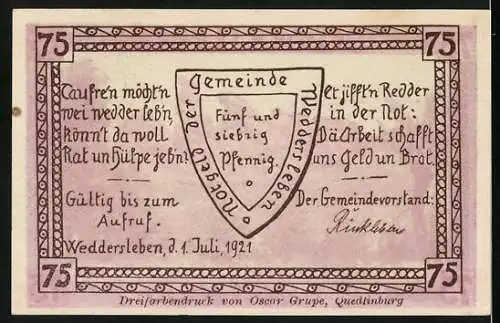 75
75
Taufre'n möcht'n
wei wedder leb'n,
könn't da woll
Rat un Hülpe jeb'n?
Gültig bis zum
Aufruf.
Weddersleben, d. 1. Juli, 1921
Notgeld der Gemeinde Weddersleben
Fünf und
siebzig
Pfennig.
et jifft'n Redder
in der Not:
Dä Arbeit schafft
uns Geld un Brot.
Der Gemeindevorstand:
75
75
Dreifarbendruck von Oscar Grupe, Quedlinburg